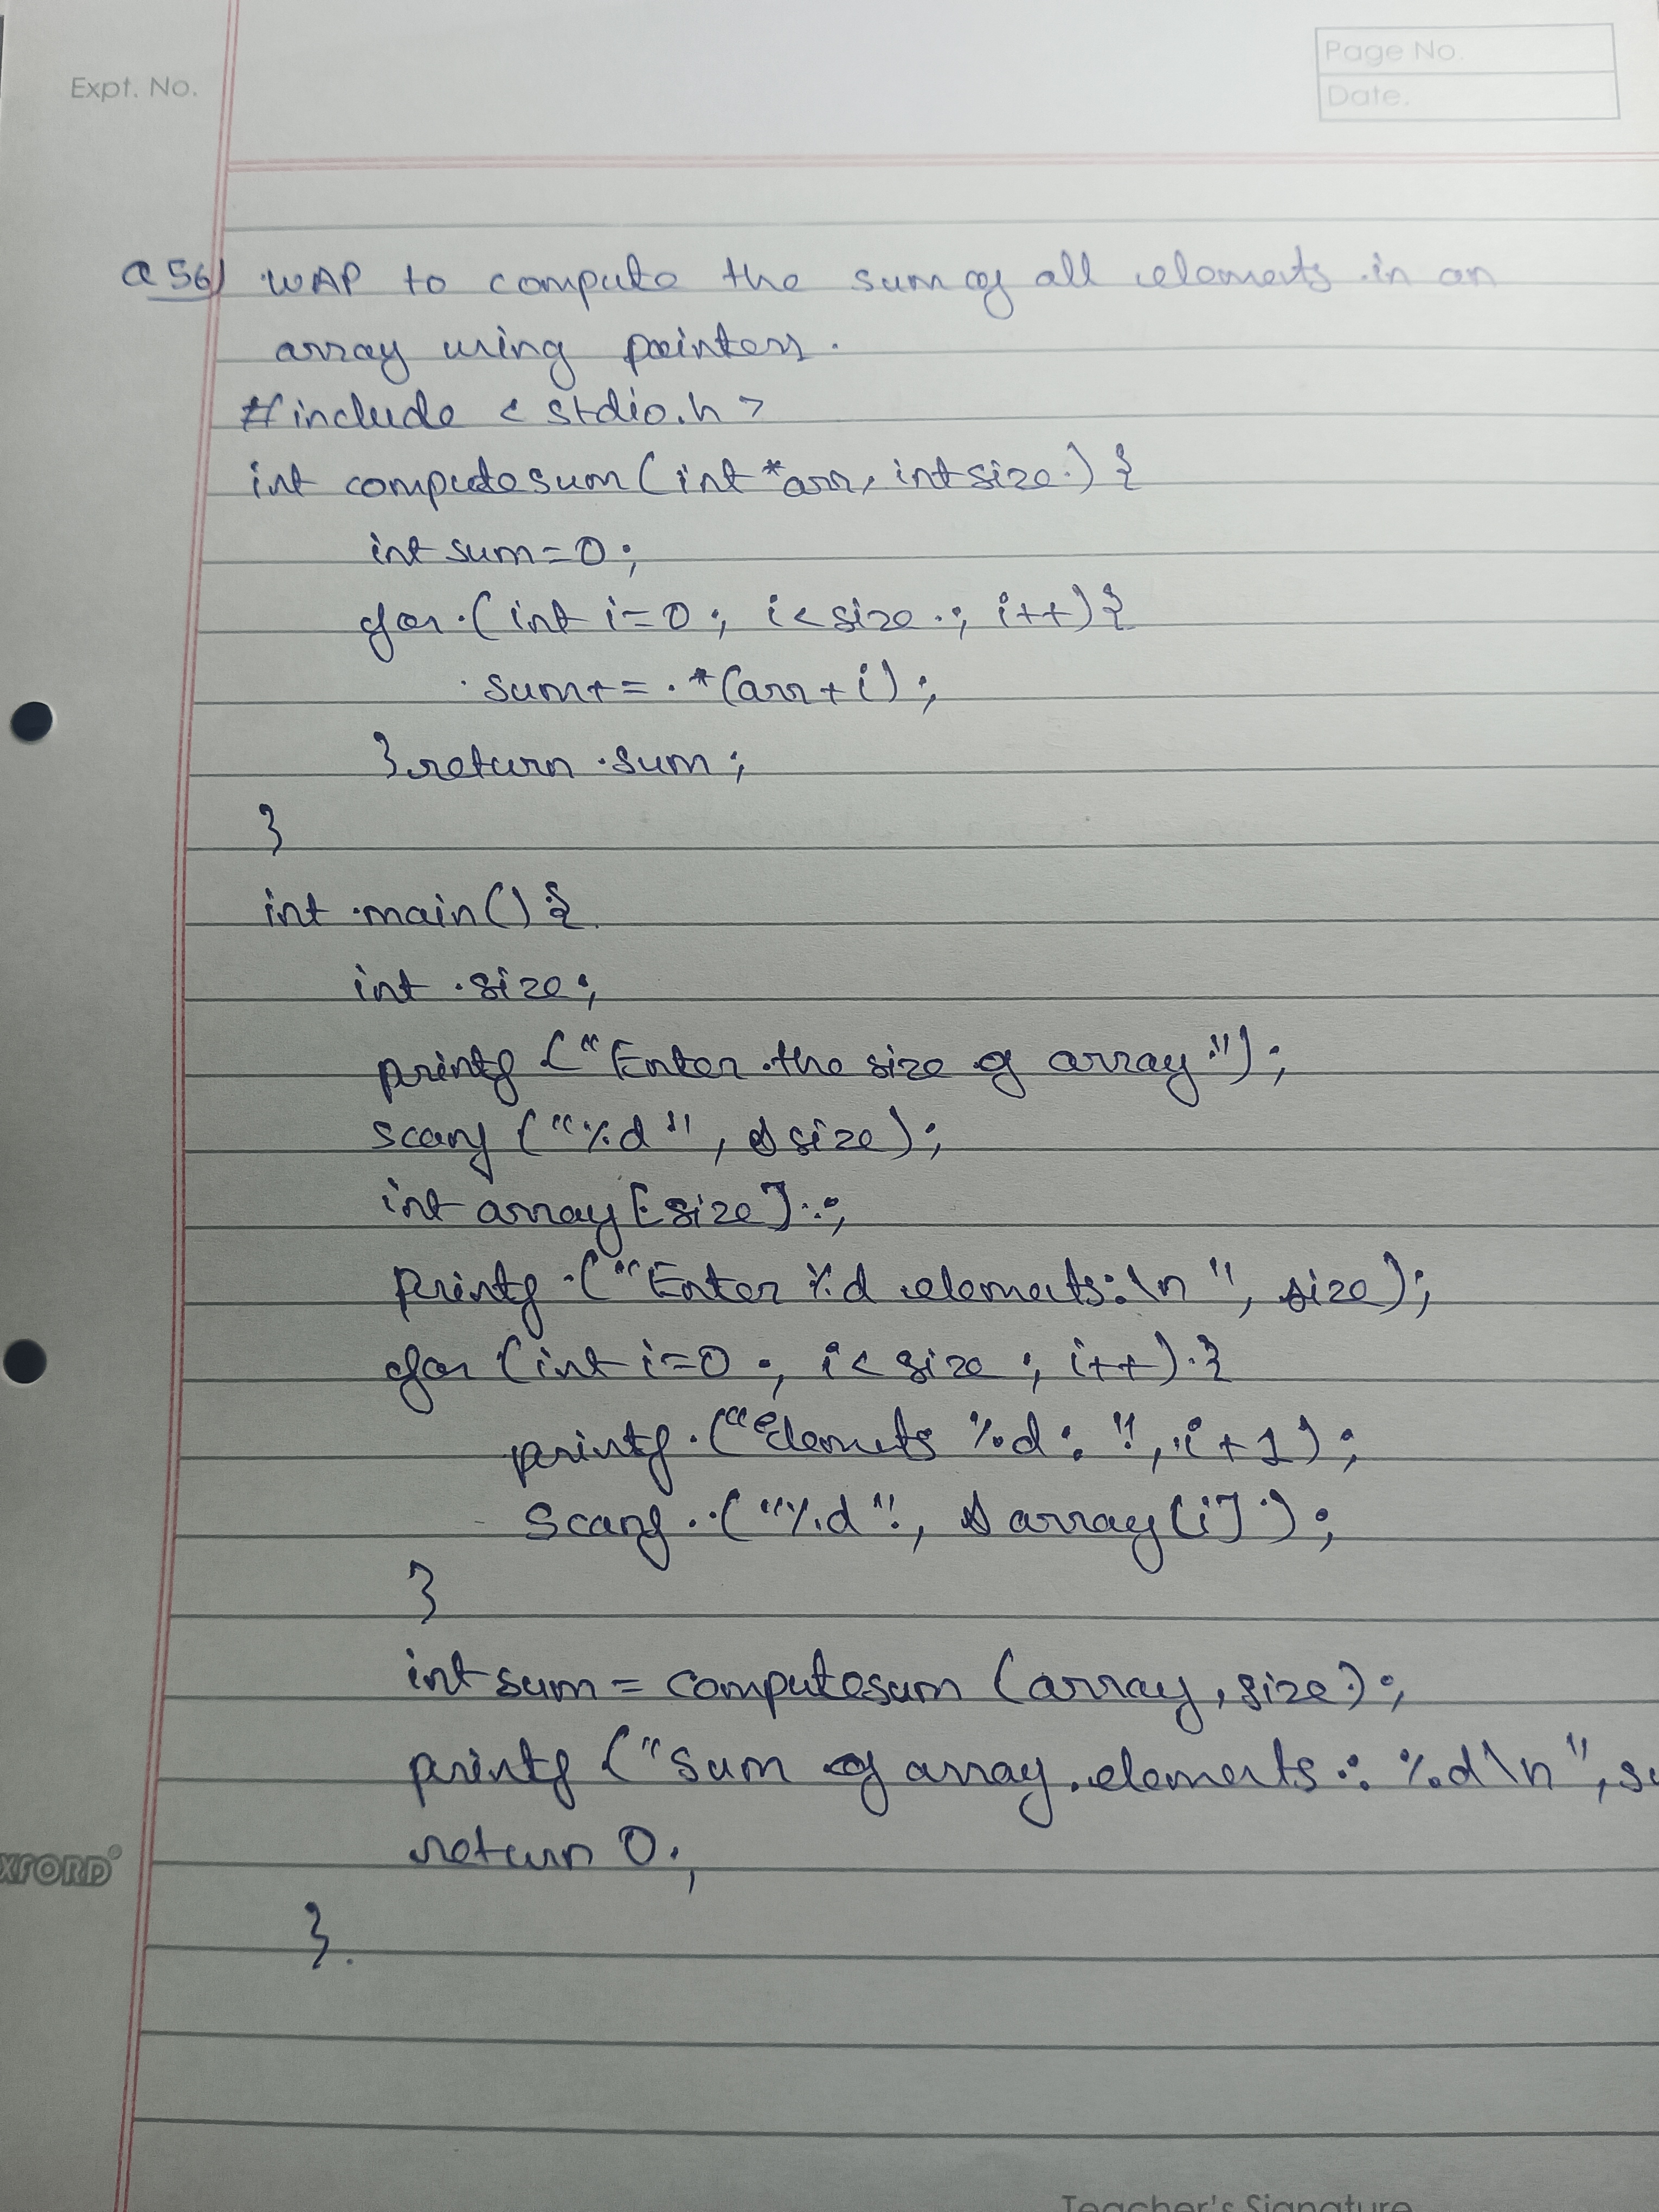 Page No.
Expt. No.
Date.
Q56) WAP to compute the sum of all elements in an
array using pointers.
#include <stdio.h>
int computesum(int *arr, int size) {
int sum=0;
for (int i=0; i<size; i++){
sum+= *(arr+i);
}return sum;
}
int main() {
int size;
printf ("Enter the size of array");
scanf ("%d", &size);
int array[size];
printf ("Enter %d elements:\n", size);
for (int i=0; i<size; i++) {
printf ("Elemets %d: ", i+1);
scanf ("%d", &array[i]);
}
int sum = computesum (array, size);
printf ("Sum of array elements: %d\n", su
return 0;
}.
XFORD
Teacher's Signature